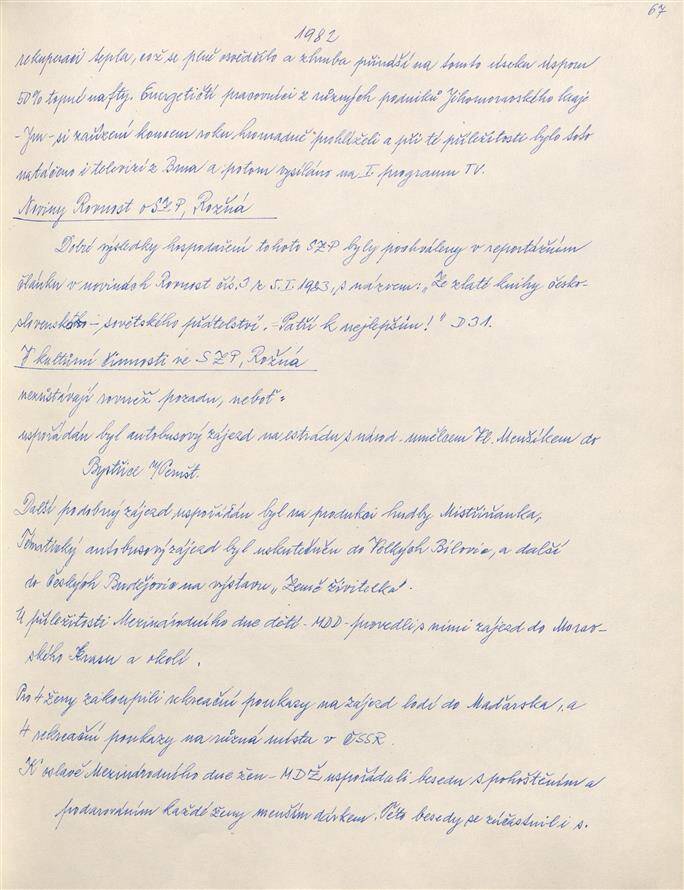 67
1982
rekuperací tepla, což se plně osvědčilo a zhruba přináší na tomto úseku úsporu
50% topné nafty. Energetičtí pracovníci z různých podniků Jihomoravského kraje
- Jm - si zařízení koncem roku hromadně prohlíželi a při té příležitosti bylo toto
natáčeno i televizí z Brna a potom vysíláno na I. program TV.
Noviny Rovnost o SZP, Rožná
Dobré výsledky hospodaření tohoto SZP byly pochváleny v reportážním
článku v novinách Rovnost čís. 3 z 5. I. 1983, s názvem: „Ze zlaté knihy česko-
slovensko - sovětského přátelství. - Patří k nejlepším!" D 31.
V kulturní činnosti ve SZP, Rožná
nezůstávají rovněž pozadu, neboť =
uspořádán byl autobusový zájezd na estrádu s národ. umělcem Vl. Menšíkem do
Bystřice n/Pernšt.
Další podobný zájezd uspořádán byl na produkci hudby Mistříňanka,
Tématický autobusový zájezd byl uskutečněn do Velkých Bílovic, a další
do Českých Budějovic na výstavu „Země živitelka".
U příležitosti Mezinárodního dne dětí - MDD - provedli s nimi zájezd do Morav-
ského Krasu a okolí.
Pro 4 ženy zakoupili rekreační poukazy na zájezd lodí do Maďarska, a
4 rekreační poukazy na různá místa v ČSSR.
K oslavě Mezinárodního dne žen - MDŽ uspořádali besedu s pohoštěním a
podarováním každé ženy menším dárkem. Této besedy se zúčastnil i s.